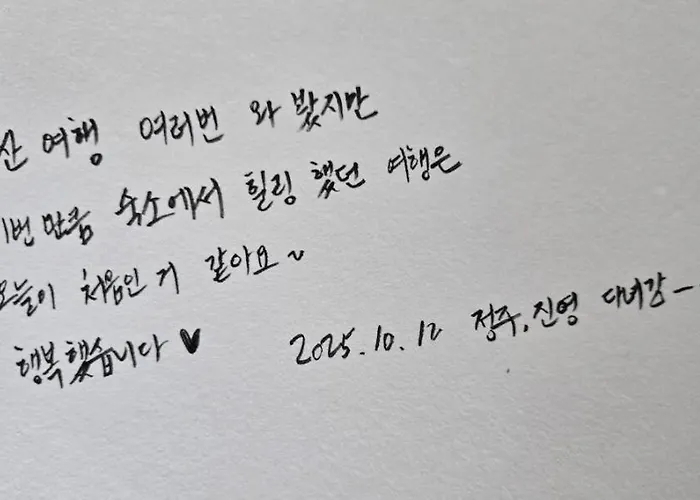 산 여행 여러번 와 봤지만
이번 만큼 숙소에서 힐링 했던 여행은
오늘이 처음인 거 같아요~
행복했습니다 ♥
2025.10.12 정주,진영 다녀감-